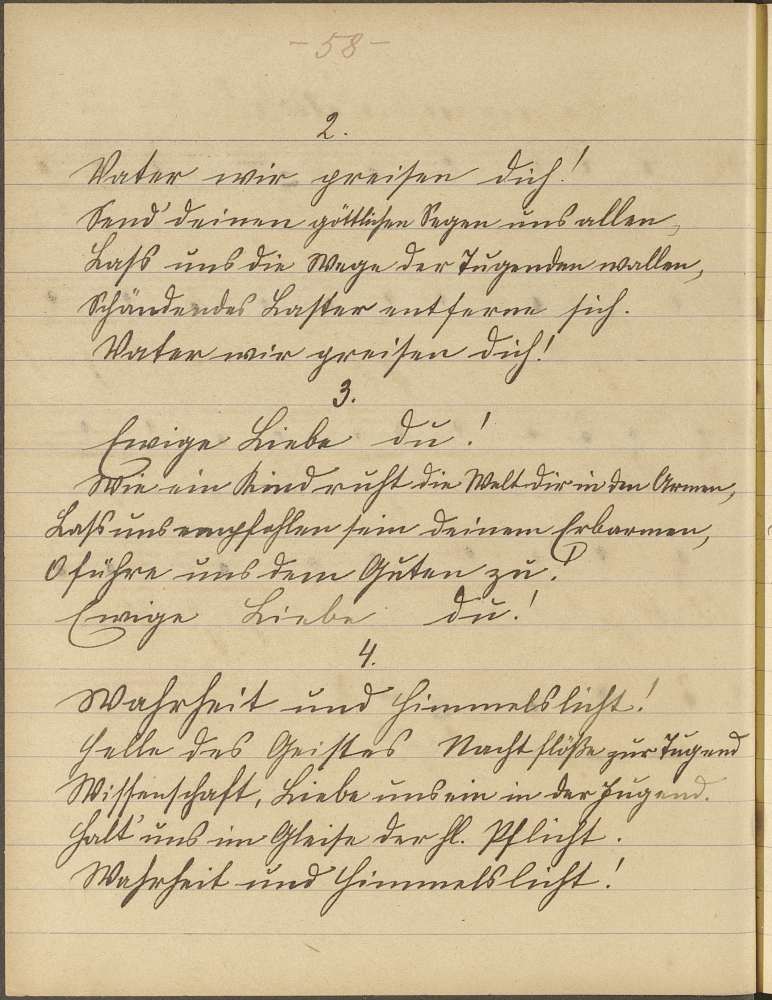 -58-
2.
Vater wir preisen dich!
Send' deinen göttlichen Segen uns allen,
Lass uns die Wege der Tugenden wallen,
Schändendes Laster entferne sich.
Vater wir preisen dich!
3.
Ewige Liebe du!
Wie ein Kind ruht die Welt dir in den Armen,
Lass uns empfohlen sein deinem Erbarmen,
O führe uns dem Guten zu!
Ewige Liebe du!
4.
Wahrheit und Himmelslicht!
Helle des Geistes Nacht flöße zur Tugend
Wissenschaft, Liebe uns ein in der Jugend.
Halt' uns im Gleise der hl. Pflicht.
Wahrheit und Himmelslicht!